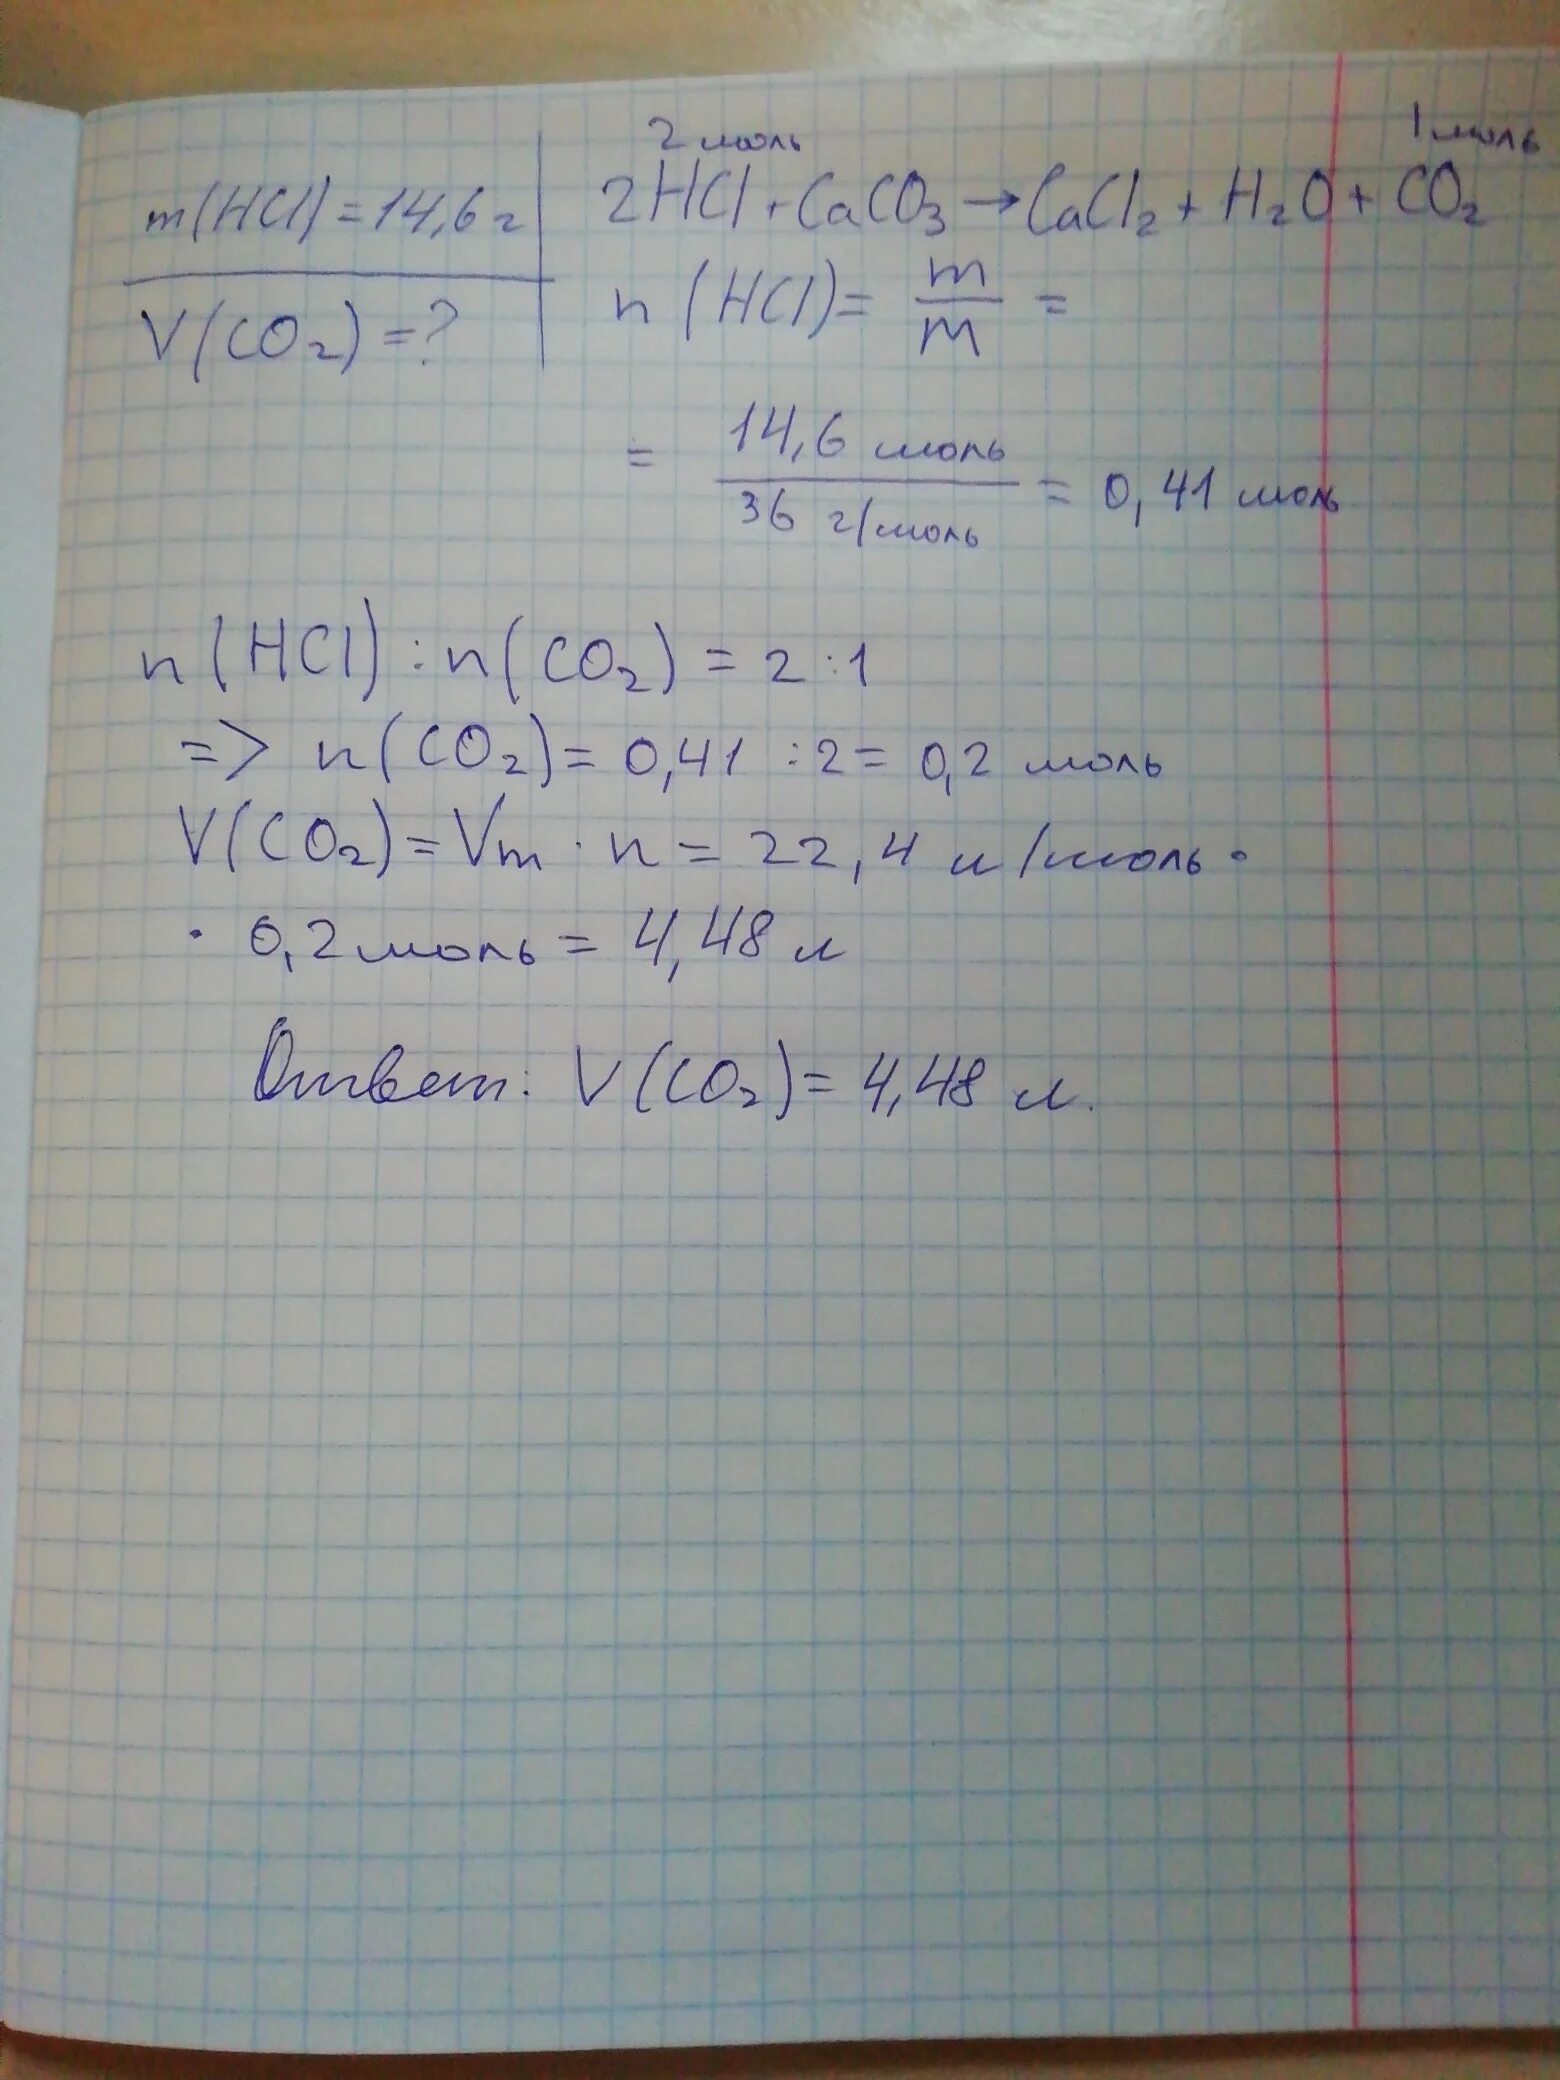 m(HCl)=14,6 г
V(CO₂)=?
2 моль 1 моль
2HCl + CaCO₃ → CaCl₂ + H₂O + CO₂
n (HCl) = m/M =
= 14,6 моль / 36 г/моль = 0,41 моль
n(HCl) : n(CO₂) = 2 : 1
=> n(CO₂) = 0,41 : 2 = 0,2 моль
V(CO₂) = Vm · n = 22,4 л/моль ·
· 0,2 моль = 4,48 л
Ответ: V(CO₂) = 4,48 л.